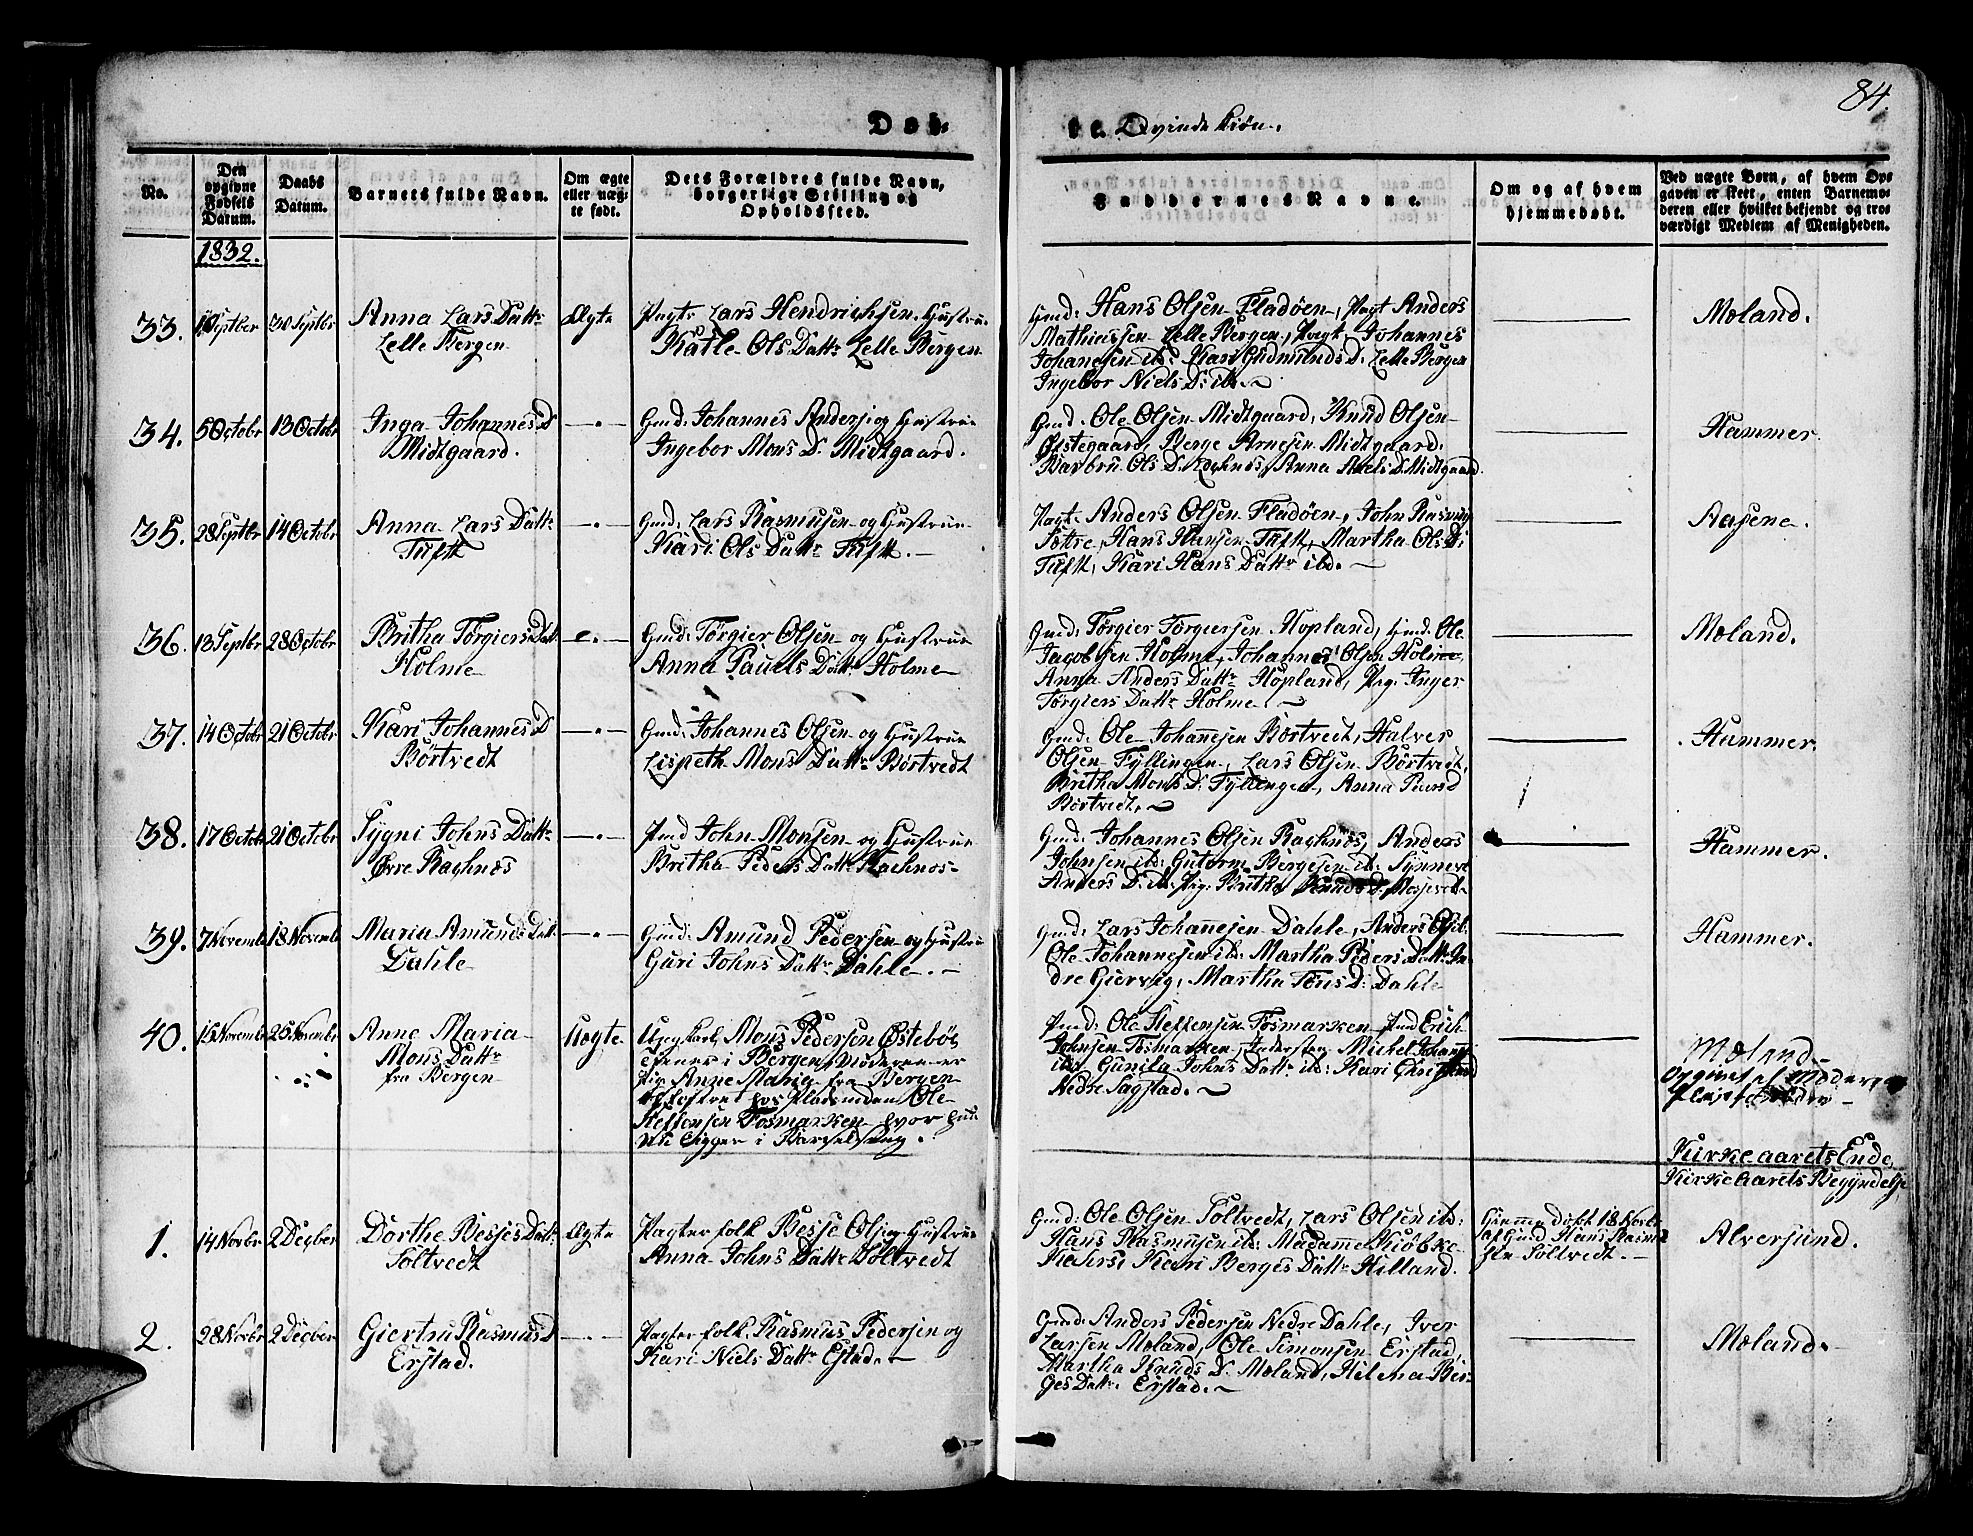 84.
Døb-
te. Qvindekiön.
No.
Den opgivne Fødsels Datum.
Daabs Datum.
Barnets fulde Navn.
Om ægte eller uægte født.
Dets Forældres fulde Navn, borgerlige Stilling og Opholdssted.
Faddernes Navne.
Om og af hvem hjemmedøbt.
Ved uægte Børn, af hvem Opgaven er skeet, enten Barnemoderen eller hvilket bekjendt og troværdigt Medlem af Menigheden.
1832.
33. Septber 30 Septbr Anna Lars Dattr Ægte Pagtr Lars Hendrichsen. Hustrue
Lelle Bergen Katle Ols Dattr Lelle Bergen
Gmd: Hans Olsen Fladöen, Pagt Anders
Mathiassen Lelle Bergen, Pagt Johannes
Johanesen ibd: Kari Gudmunds D: Lelle Bergen
Ingebor Niels D: ibd.
Moland.
34. 5 Octobr 13 Octobr Inga Johannes D —"— Gmd: Johannes Anders: og Hustrue
Midtgaard. Ingebor Mons D. Midtgaard.
Gmd. Ole Olsen Midtgaard, Knud Olsen
Østegaard, Berge Arnesen Midtgaard.
Barbru Ols D. Anna Niels D. Midtgaard
Hammer.
35. 28 Septbr 14 Octobr Anna Lars Dattr —"— Gmd: Lars Rasmusen og Hustrue
Tuft Kari Ols Dattr Tuft. —
Pagt. Anders Olsen Fladöen, John Rasmus
Tottre, Hans Hansen Tuft, Martha Ols D:
Tuft, Kari Hans Dattr ibd. —
Aasene.
36. 13 Septbr 28 Octobr Britha Törgiers Datt —"— Gmd: Törgier Olsen og Hustrue
Holme Anna Pauels Dattr Holme
Gmd: Törgier Törgiersen Hopland, Gmd. Ole
Jacobsen Holme, Johannes Olsen Holme,
Anna Anders Dattr Hopland, Pig. Inger
Törgiers Dattr Holme. —
Moland.
37. 14 Octobr 21 Octobr Kari Johannes D —"— Gmd: Johannes Olsen og Hustrue
Börtvedt Lispeth Mons Dattr Börtvedt
Gmd: Ole Johannesen Börtvedt, Halver
Olsen Fyllingen, Lars Olsen Börtvedt,
Britha Mons D: Fyllingen, Anna
Börtvedt. —
Hammer.
38. 17 Octobr 21 Octobr Sygni Johns Dattr —"— Pmd John Monsen og Hustrue
Øvre Raghnös Britha Peders Dattr Raghnos
Gmd: Johannes Olsen Raghnös, Anders
Johnsen ibd: Gutorm Bergesen ib: Synneve
Anders D: ibd: Pig: Britha D:
Hammer.
39. 7 Novembr 18 Novembr Maria Amunds Datt —"— Gmd: Amund Pedersen og Hustrue
Dahle Guri Johns Dattr Dahle. —
Gmd: Lars Johannesen Dahle, Anders
Ole Johannesen ibd: Martha Peders Dattr In-
dre Giervig, Martha Tons D: Dahle
Hammer.
40. 15 Novembr 25 Novembr Anne Maria Uægte Ungkarl Mons Pedersen Østebö,
Mons Dattr tjener i Bergen, Moderen er
fra Bergen Pig: Anne Maria fra Bergen
opfostret hos Pladsmden Ole
Steffensen Fosmarken hvor hun
nu ligger i Barselseng.
Pmd: Ole Steffensen Fosmarken Pmd Erich
Johnsen Fosmarken, Inderster Michel Johann:
ibd Gunila Johns Dattr ibd: Kari
Nedre Sagstad. —
Moland
Opgivet af Moderens
Pleje —
Kirkeaarets Ende,
Kirkeaarets Begÿndelse
1. 14 Novbr 2 Decber Dorthe Besjes Dattr Ægte Pagter folk Besje Ols: og Hustrue
Soltvedt Anna Johns Dattr Soltvedt
Gmd: Ole Olsen Soltvedt, Lars Olsen ibd:
Hans Rasmusen ib: Madamme Kiöbke
Kahrs, Kari Berges Dattr Hilland.
Hiemme döbt 18 Novbr
af Gmd Hans Rasmu
sen Soltvedt. —
Alversund.
2. 28 Novbr 2 Decber Giertru Rasmus D —"— Pagter folk Rasmus Pedersen og
Erstad. Kari Niels Dattr Estad. —
Gmd: Anders Pedersen Nedre Dahle, Iver
Larsen Moland, Ole Simonsen Erstad,
Martha Knuds D. Moland, Helena Ber-
ges Dattr. Erstad. —
Moland.